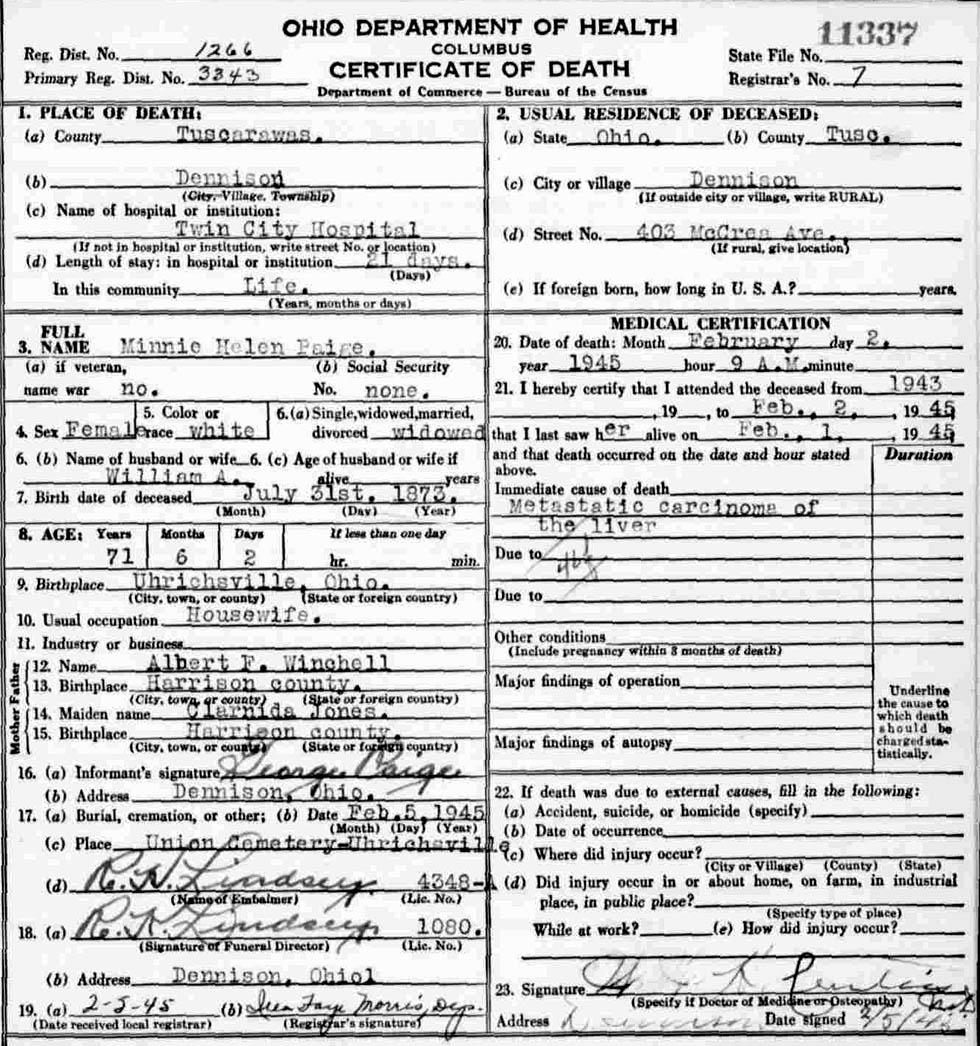 OHIO DEPARTMENT OF HEALTH
COLUMBUS
CERTIFICATE OF DEATH
Department of Commerce — Bureau of the Census
Reg. Dist. No. 1266
Primary Reg. Dist. No. 3343
11337
State File No.
Registrar's No. 7
1. PLACE OF DEATH:
(a) County Tuscarawas.
(b) Dennison
(City, Village, Township)
(c) Name of hospital or institution:
Twin City Hospital
(If not in hospital or institution, write street No. or location)
(d) Length of stay: in hospital or institution 21 days.
(Days)
In this community Life.
(Years, months or days)
2. USUAL RESIDENCE OF DECEASED:
(a) State Ohio. (b) County Tusc.
(c) City or village Dennison
(If outside city or village, write RURAL)
(d) Street No. 403 McCrea Ave.
(If rural, give location)
(e) If foreign born, how long in U. S. A.? years.
3. FULL NAME Minnie Helen Paige.
(a) if veteran, (b) Social Security
name war no. No. none.
4. Sex Female 5. Color or race white 6. (a) Single, widowed, married, divorced widowed
6. (b) Name of husband or wife 6. (c) Age of husband or wife if
William A. alive years
7. Birth date of deceased July 31st. 1873.
(Month) (Day) (Year)
8. AGE: Years Months Days If less than one day
71 6 2 hr. min.
9. Birthplace Uhrichsville, Ohio.
(City, town, or county) (State or foreign country)
10. Usual occupation Housewife.
11. Industry or business
Father
12. Name Albert F. Winchell
13. Birthplace Harrison county.
(City, town, or county) (State or foreign country)
Mother
14. Maiden name Clarnida Jones.
15. Birthplace Harrison county.
(City, town, or county) (State or foreign country)
16. (a) Informant's signature George Paige
(b) Address Dennison, Ohio.
17. (a) Burial, cremation, or other; (b) Date Feb.5, 1945
(Month) (Day) (Year)
(c) Place Union Cemetery-Uhrichsville
(d) R. K. Lindsey 4348-A
(Name of Embalmer) (Lic. No.)
18. (a) R. K. Lindsey 1080.
(Signature of Funeral Director) (Lic. No.)
(b) Address Dennison, Ohiol
19. (a) 2-5-45 (b) Faye Morris, Dep.
(Date received local registrar) (Registrar's signature)
MEDICAL CERTIFICATION
20. Date of death: Month February day 2.
year 1945 hour 9 A.M. minute
21. I hereby certify that I attended the deceased from 1943
, 19 , to Feb., 2, , 1945
that I last saw her alive on Feb., 1, , 1945
and that death occurred on the date and hour stated above.
Duration
Immediate cause of death
Metastatic carcinoma of
the liver
Due to
Due to
Other conditions
(Include pregnancy within 3 months of death)
Major findings of operation
Major findings of autopsy
Underline
the cause to
which death
should be
charged sta-
tistically.
22. If death was due to external causes, fill in the following:
(a) Accident, suicide, or homicide (specify)
(b) Date of occurrence
(c) Where did injury occur?
(City or Village) (County) (State)
(d) Did injury occur in or about home, on farm, in industrial
place, in public place?
(Specify type of place)
While at work? (e) How did injury occur?
23. Signature
(Specify if Doctor of Medicine or Osteopathy)
Address Date signed 2/5/45